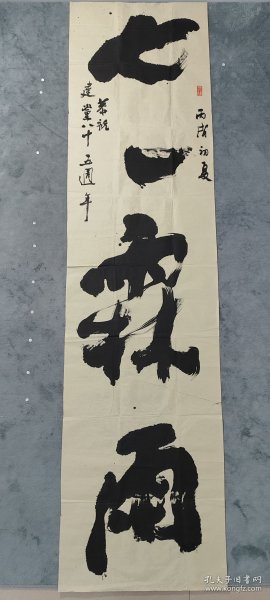 丙戌初夏
七一霖雨
恭祝
建党八十五週年
孔夫子旧书网